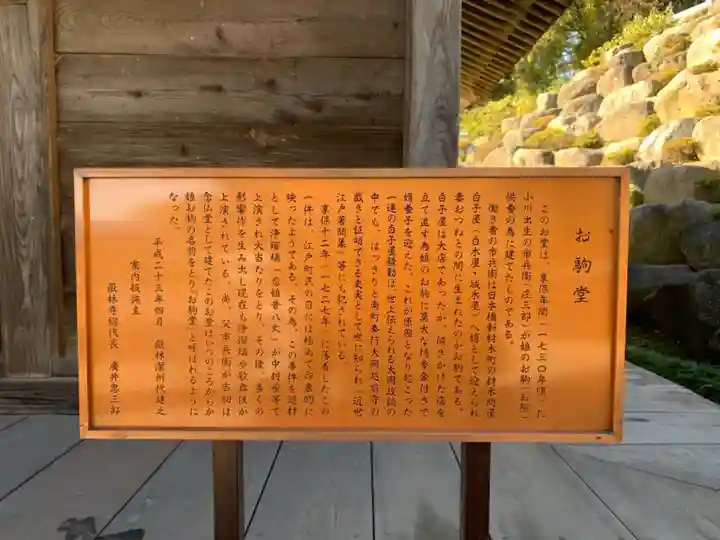 お駒堂
このお堂は、享保年間（一七三〇年頃）に
小川出生の市兵衛（庄三郎）が娘のお駒（お熊）
供養の為に建てたものである。
働き者の市兵衛は日本橋新材木町の材木問屋
白子屋（白木屋・城木屋）へ婿として迎えられ
妻おつねとの間に生まれたのがお駒である。
白子屋は大店であったが、傾きかけた店を
立て直す為娘のお駒に莫大な持参金付きで
婿養子を迎えた。これが原因となり起こった
一連の白子屋騒動は、世上伝えられる大岡政談の
中でも、はっきりと南町奉行大岡越前守の
裁きと証明できる史実として世に知られ「近世
江戸著聞集」等にも記されている。
享保十二年（一七二七年）に落着したこの
一件は、江戸町民の目には極めて印象的に
映ったようである。その為、この事件を題材
として浄瑠璃「恋娘昔八丈」が中村座等で
上演され大当たりをとり、その後、多くの
影響作を生み出し現在も浄瑠璃や歌舞伎が
上演されている。尚、父市兵衛が古朝は
念仏堂として建てたこのお堂はいつのころからか
娘お駒の名前をとり「お駒堂」と呼ばれるように
なった。
平成二十三年四月　嶽林潔州代建之
案内板施主
嶽林寺総代長　廣井忠三郎